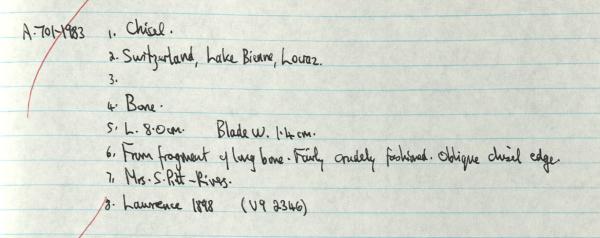 A.701-1983 1. Chisel.
2. Switzerland, Lake Bienne, Locraz.
3.
4. Bone.
5. L. 8.0cm. Blade W. 1.4cm.
6. From fragment of long bone. Fairly crudely fashioned. Oblique chisel edge.
7. Mrs. S. Pitt-Rivers.
8. Lawrence 1898 (V9 2346)